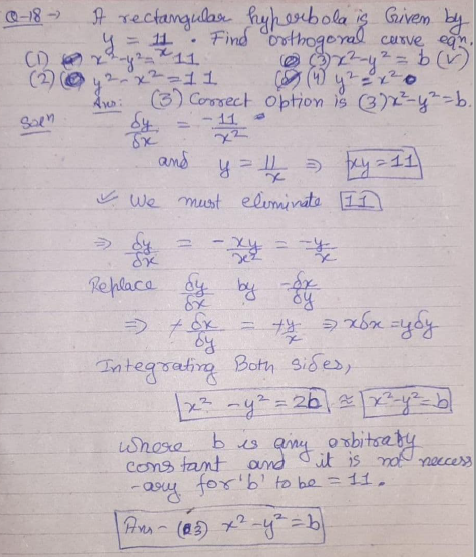 Q-18 → A rectangular hyperbola is Given by
y = 11/x . Find orthogonal curve eqn.
(1) x² - y² = 11 (3) x² - y² = b (✓)
(2) y² - x² = 11 (4) y² = x²
Ans: (3) Correct option is (3) x² - y² = b
Solⁿ δy/δx = -11/x²
and y = 11/x ⇒ xy = 11
✓ We must eliminate 11
⇒ δy/δx = -xy/x² = -y/x
Replace δy/δx by -δx/δy
⇒ +δx/δy = +y/x ⇒ xδx = yδy
Integrating Both sides,
x² - y² = 2b ≅ x² - y² = b
where b is any arbitrary
constant and it is not necess
-ary for 'b' to be = 11.
Ans - (3) x² - y² = b